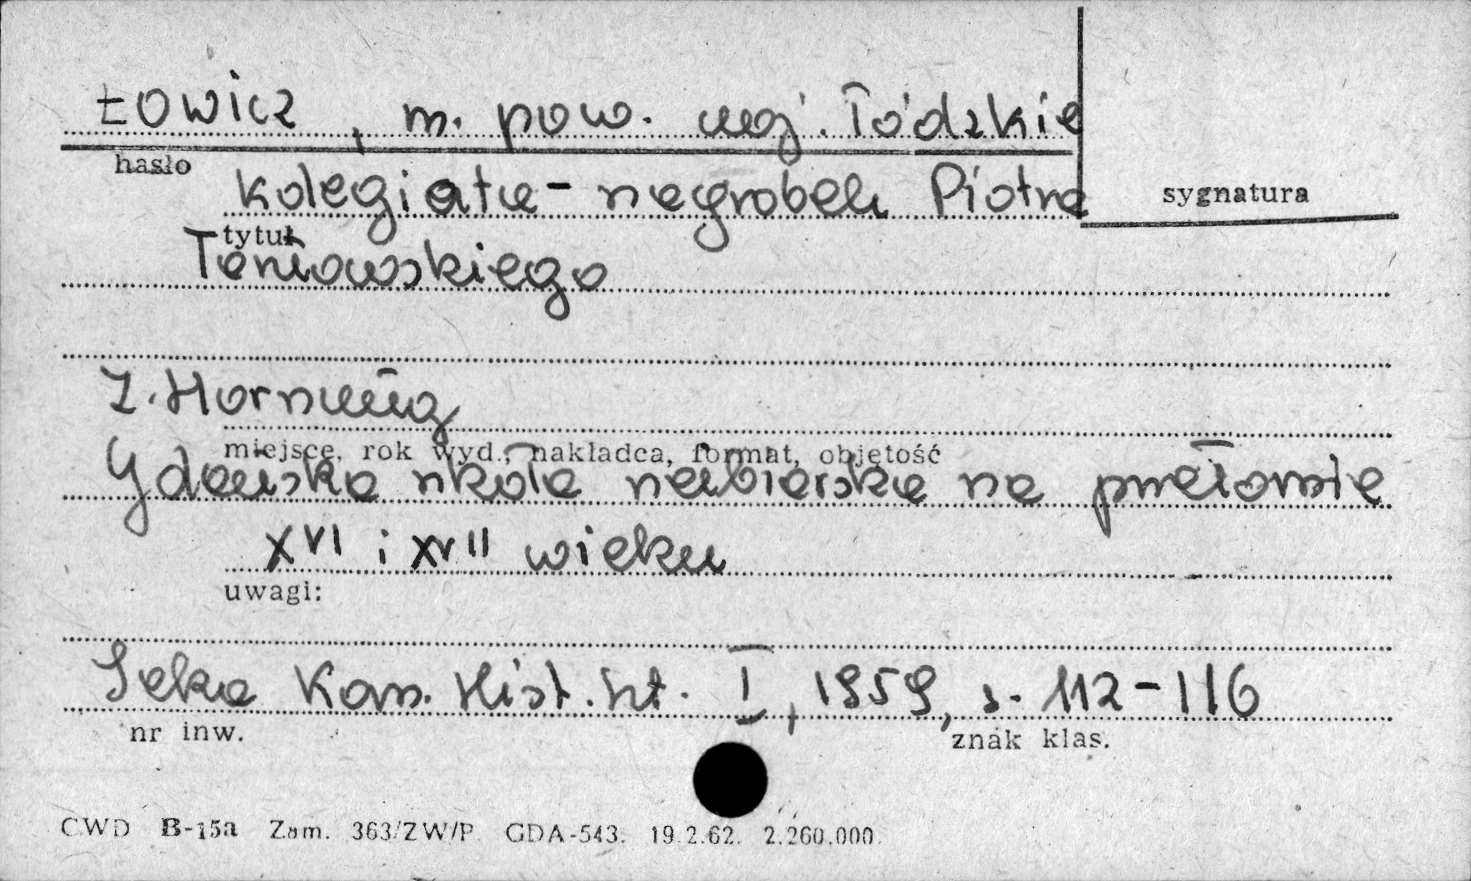 Łowicz, m. pow. woj. łódzkie
hasło
kolegiata - nagrobek Piotra
sygnatura
tytuł
Tarnowskiego
Z. Hornung
miejsce, rok wyd., nakładca, format, objętość
Gdańska szkoła rzeźbierska na przełomie
XVI i XVII wieku
uwagi:
Teka Kom. Hist. Szt. I, 1959, s. 112-116
nr inw.
znak klas.
CWD B-15a Zam. 363/ZW/P. GDA-543. 19.2.62. 2.260.000